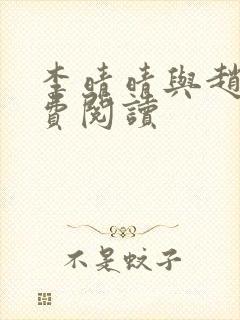 李晴晴與趙
費閱讀
不是蚊子